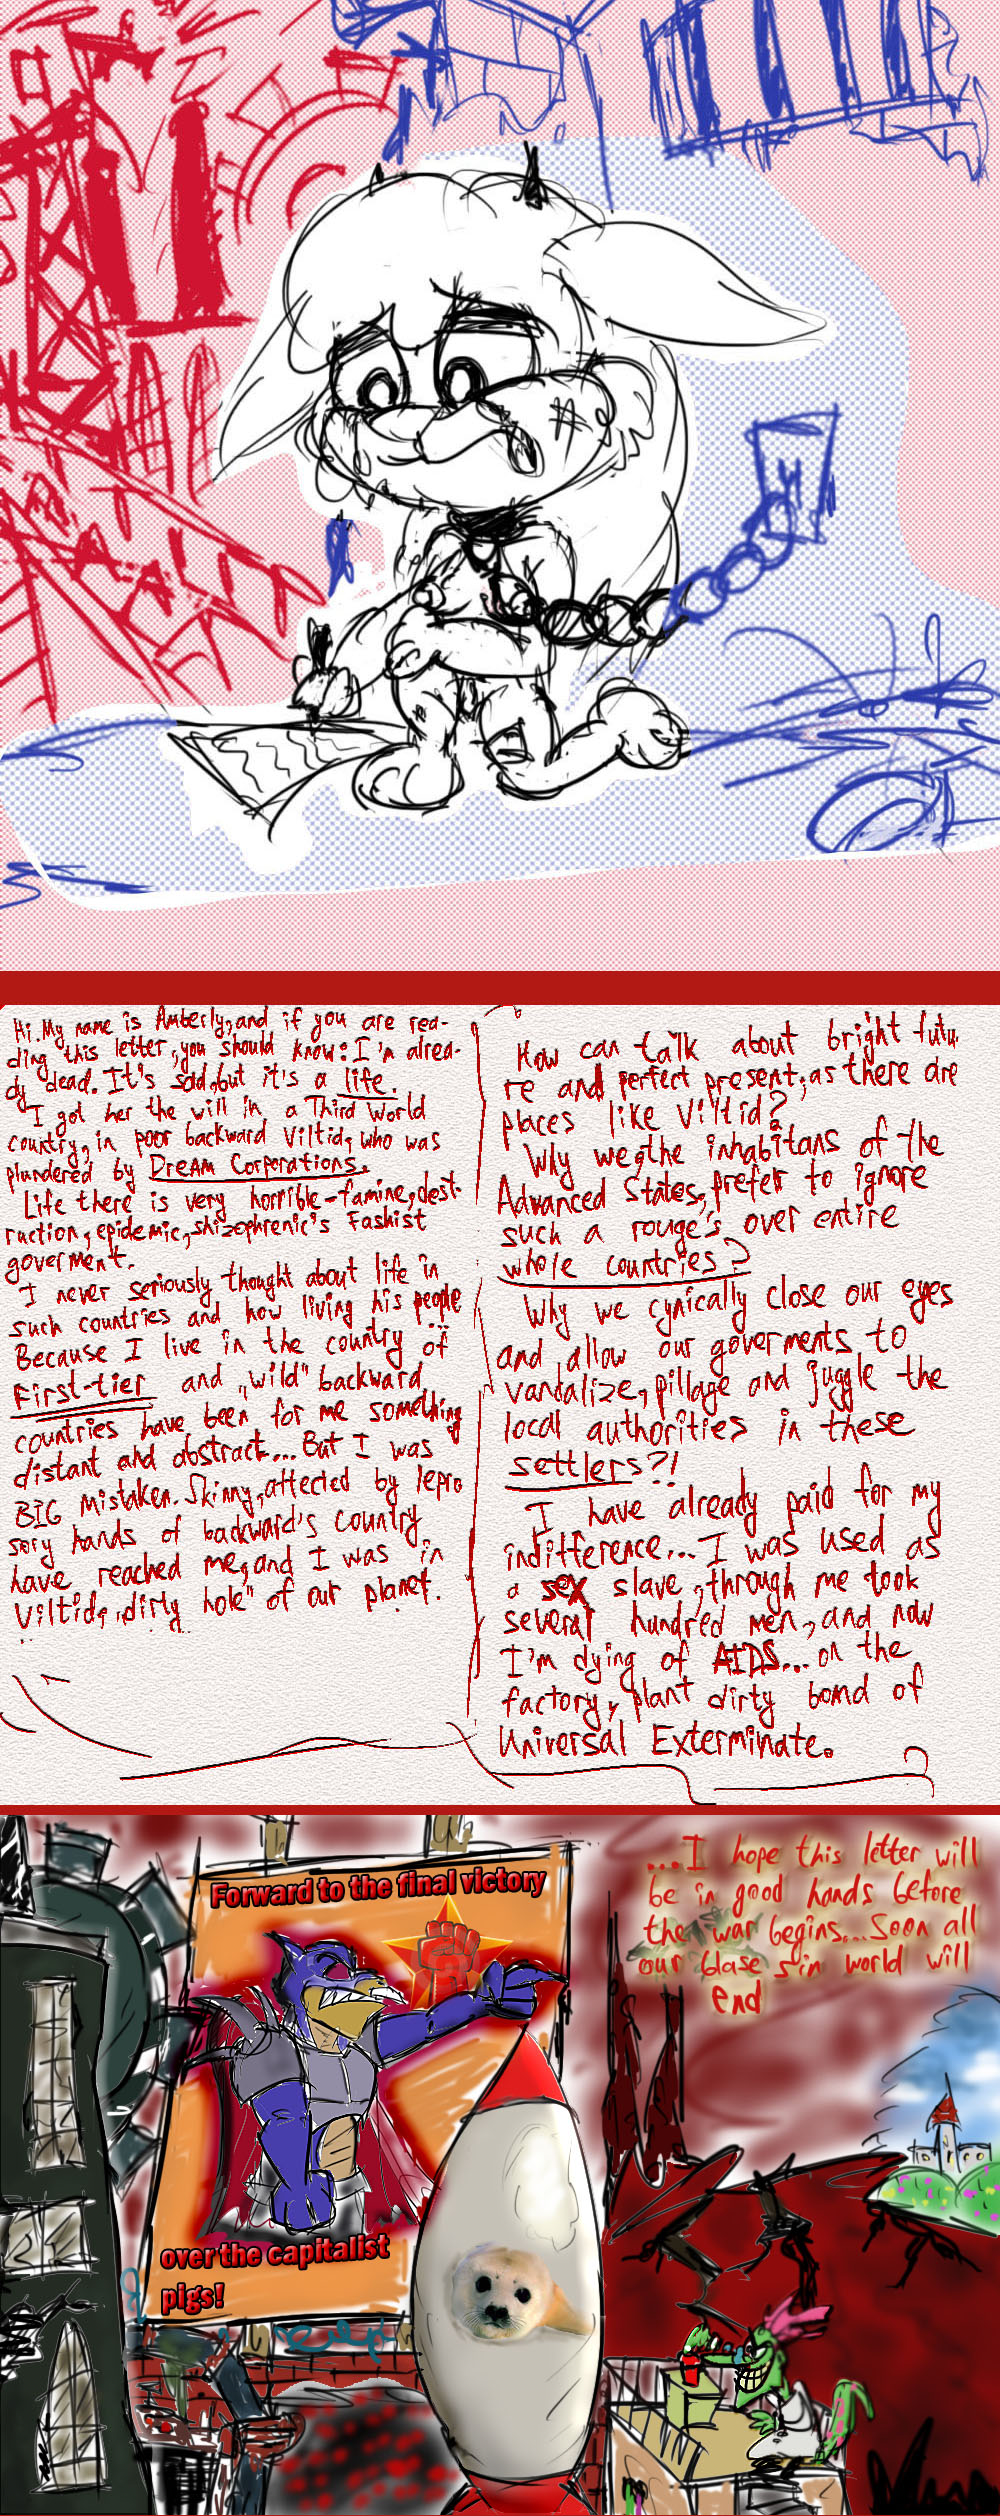 Hi. My name is Amberly, and if you are rea-
ding this letter, you should know: I'm alrea-
dy dead. It's sad, but it's a life.
I got her the will in a Third World
country, in poor backward Viltid, who was
plundered by DreAm Corporations.
Life there is very horrible - famine, dest-
ruction, epidemic, shizophrenic's Fashist
goverment.
I never seriously thought about life in
such countries and how living his people
Because I live in the country of
First-tier and „wild" backward
countries have been for me something
distant and abstract... But I was
BIG mistaken. Skinny, affected by lepro
sory hands of backward's country
have reached me, and I was in
Viltid, „dirty hole" of our planet.
How can talk about bright futu
re and perfect present, as there are
places like Viltid?
Why we, the inhabitans of the
Advanced States, prefer to ignore
such a rouge's over entire
whole countries?
Why we cynically close our eyes
and allow our goverments to
vandalize, pillage and juggle the
local authorities in these
settlers?!
I have already paid for my
indifference... I was used as
a sex slave, through me took
several hundred men, and now
I'm dying of AIDS... on the
factory, plant dirty bomd of
Universal Exterminate.
...I hope this letter will
be in good hands before
the war begins... Soon all
our blase sin world will
end
Forward to the final victory
over the capitalist
pigs!